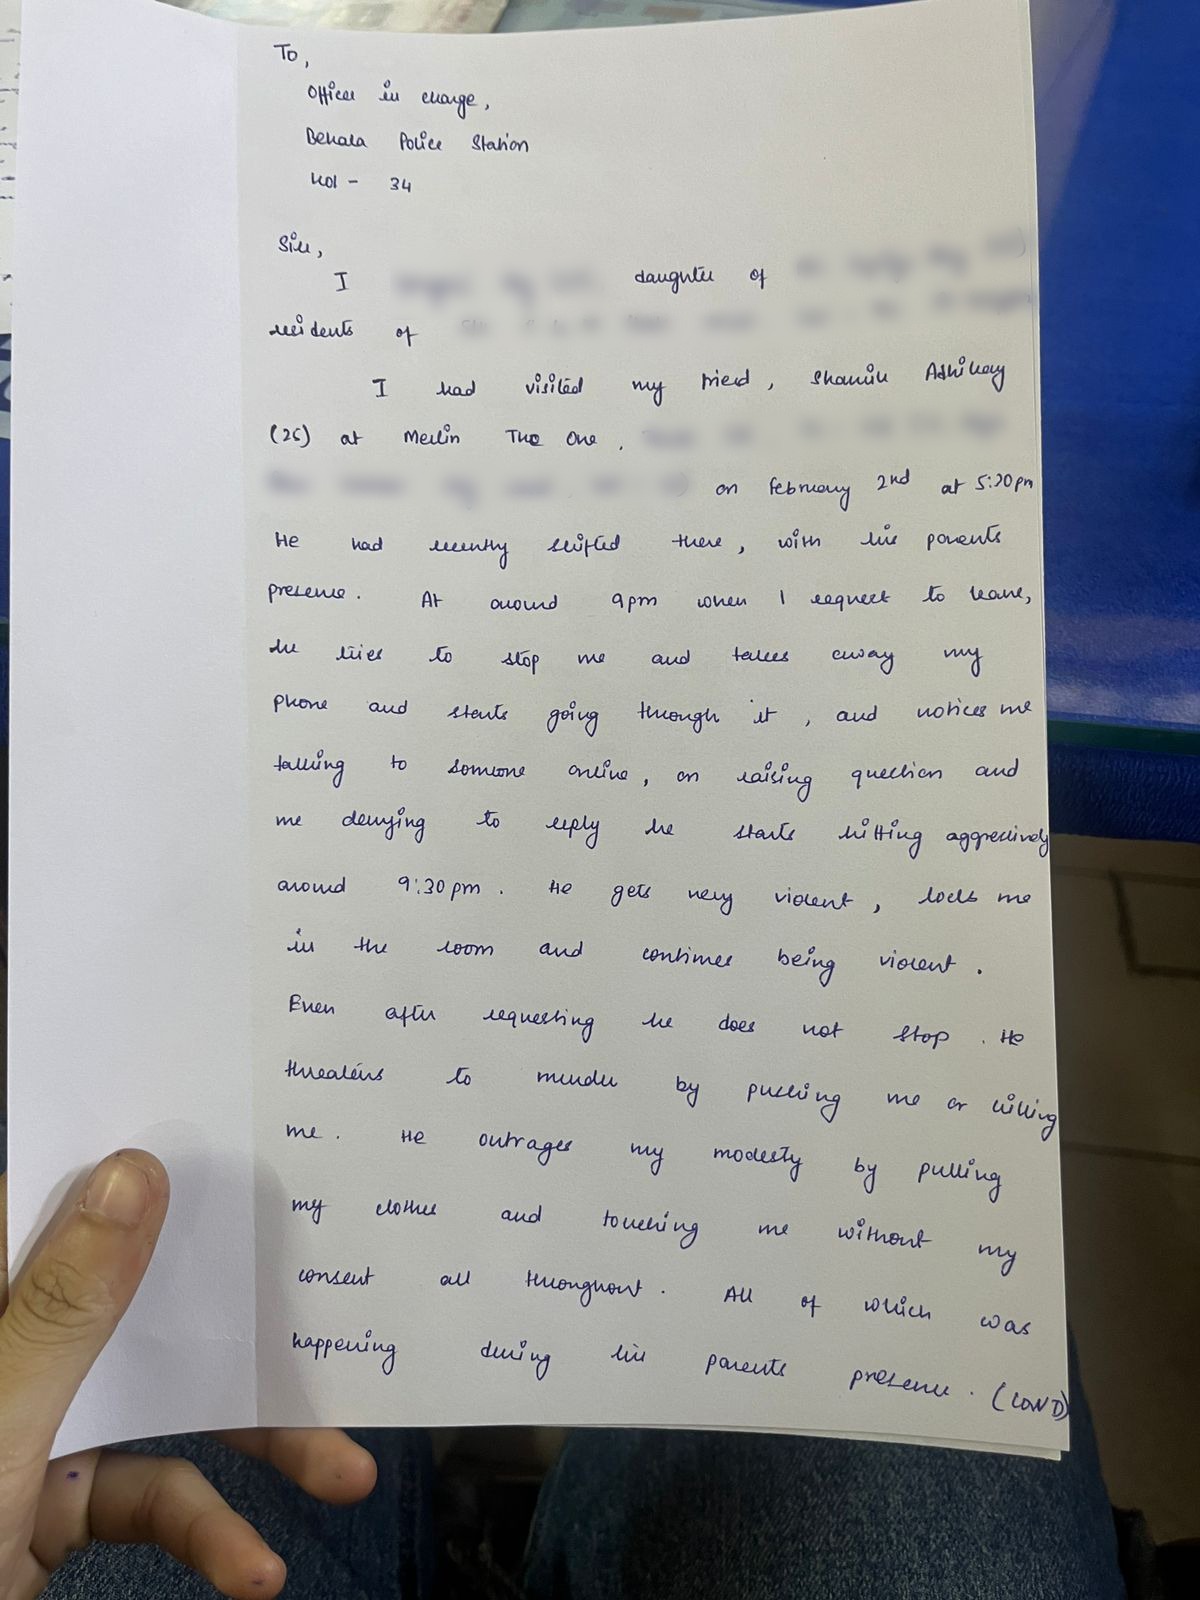 To,
Officer in charge,
Behala Police Station
Kol - 34
Sir,
I daughter of
residents of
I had visited my friend, Shamik Adhikary
(26) at Merlin The One.
on february 2nd at 5:30pm
He had recently shifted there, with his parents
presence. At around 9pm when I request to leave,
he tries to stop me and takes away my
phone and starts going through it, and notices me
talking to someone online, on raising question and
me denying to reply he starts hitting aggressively
around 9:30pm. He gets very violent, locks me
in the room and continues being violent.
Even after requesting he does not stop. He
threatens to murder by pushing me or killing
me. He outrages my modesty by pulling
my clothes and touching me without my
consent all throughout. All of which was
happening during his parents presence. (COND)